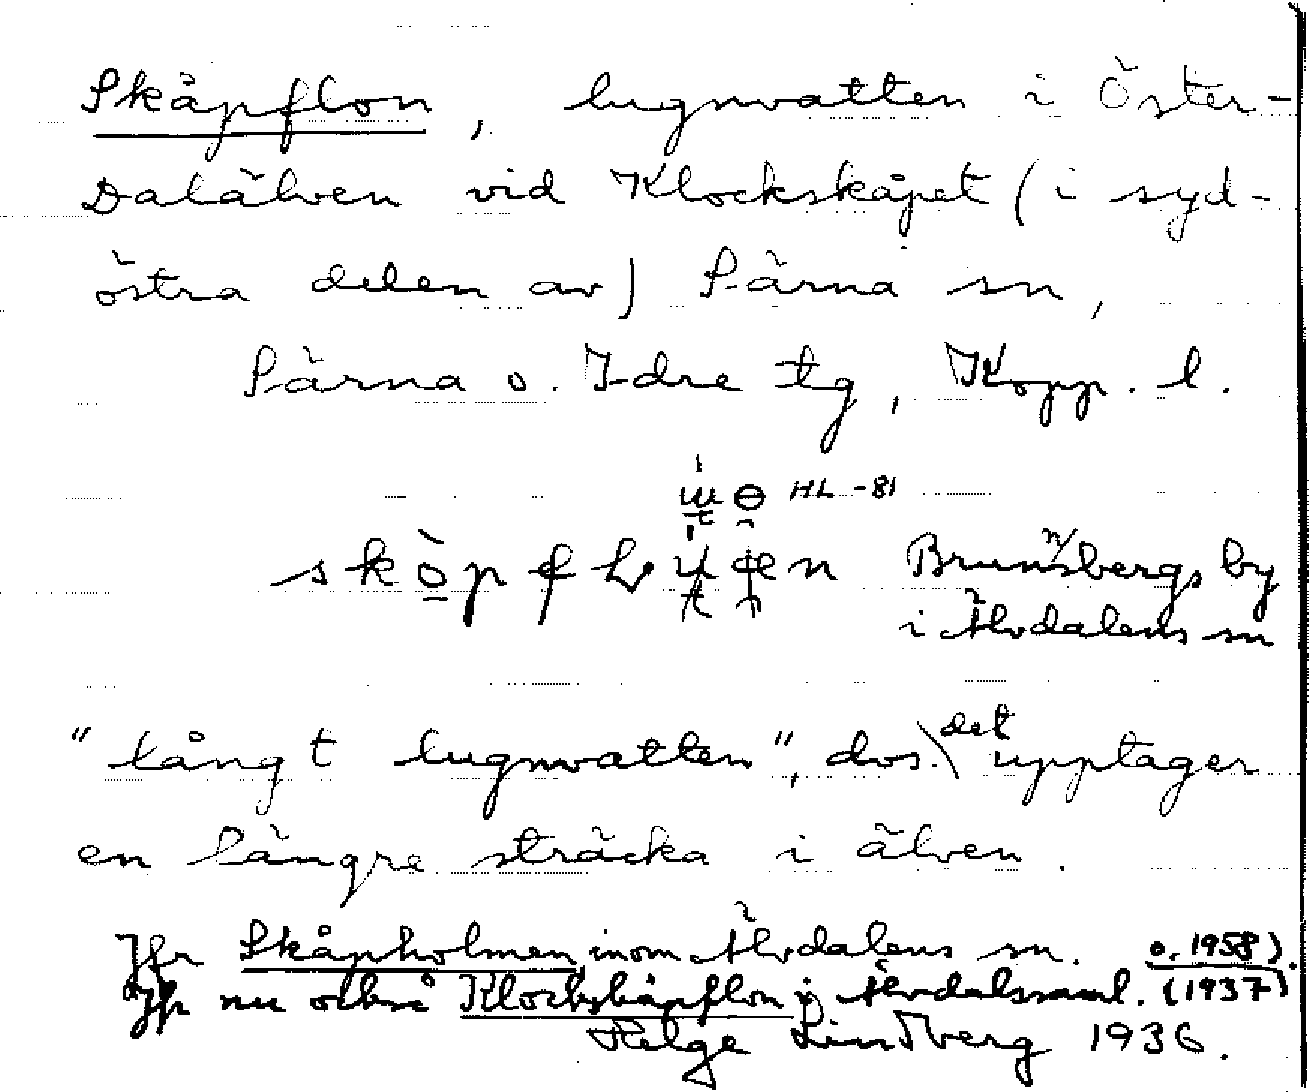 Skåpflon, lugnvatten i Öster-
Dalälven vid Klockskåpet (i syd-
östra delen av) Särna sn,
Särna o. Idre tg, Kopp. l.
HL -81
Brunnsbergs by
i Älvdalens sn
"långt lugnvatten", dvs. det upptager
en längre sträcka i älven.
Jfr Skåpholmen inom Älvdalens sn. o. 1958).
Jfr nu också Klockskåpflon i Älvdalssaml. (1937)
Helge Lindberg 1936.